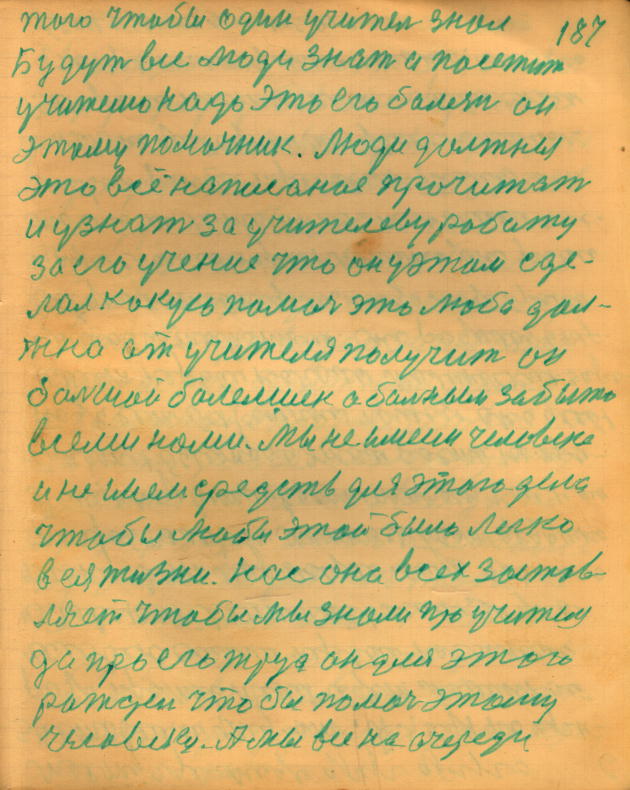 187
того чтобы один учител знал
Будут все люди знат а посетит
учителю надь это его болян он
этому помочник. Люди должны
это всё написаное прочитат
и узнат за учителеву работу
за его учение что он у этом сде-
лал какусь помоч это люба дол-
жна от учителя получит он
болшой болемшек о болным забыто
всеми нами. Мы не имеем человека
и не имем средств для этого дела
чтобы любы этой было легко
вся жизни. Нас она всех застав-
ляет чтобы мы знали про учителя
да про его труд он для этого
рожден чтобы помоч этому
человеку. А мы все на очереди